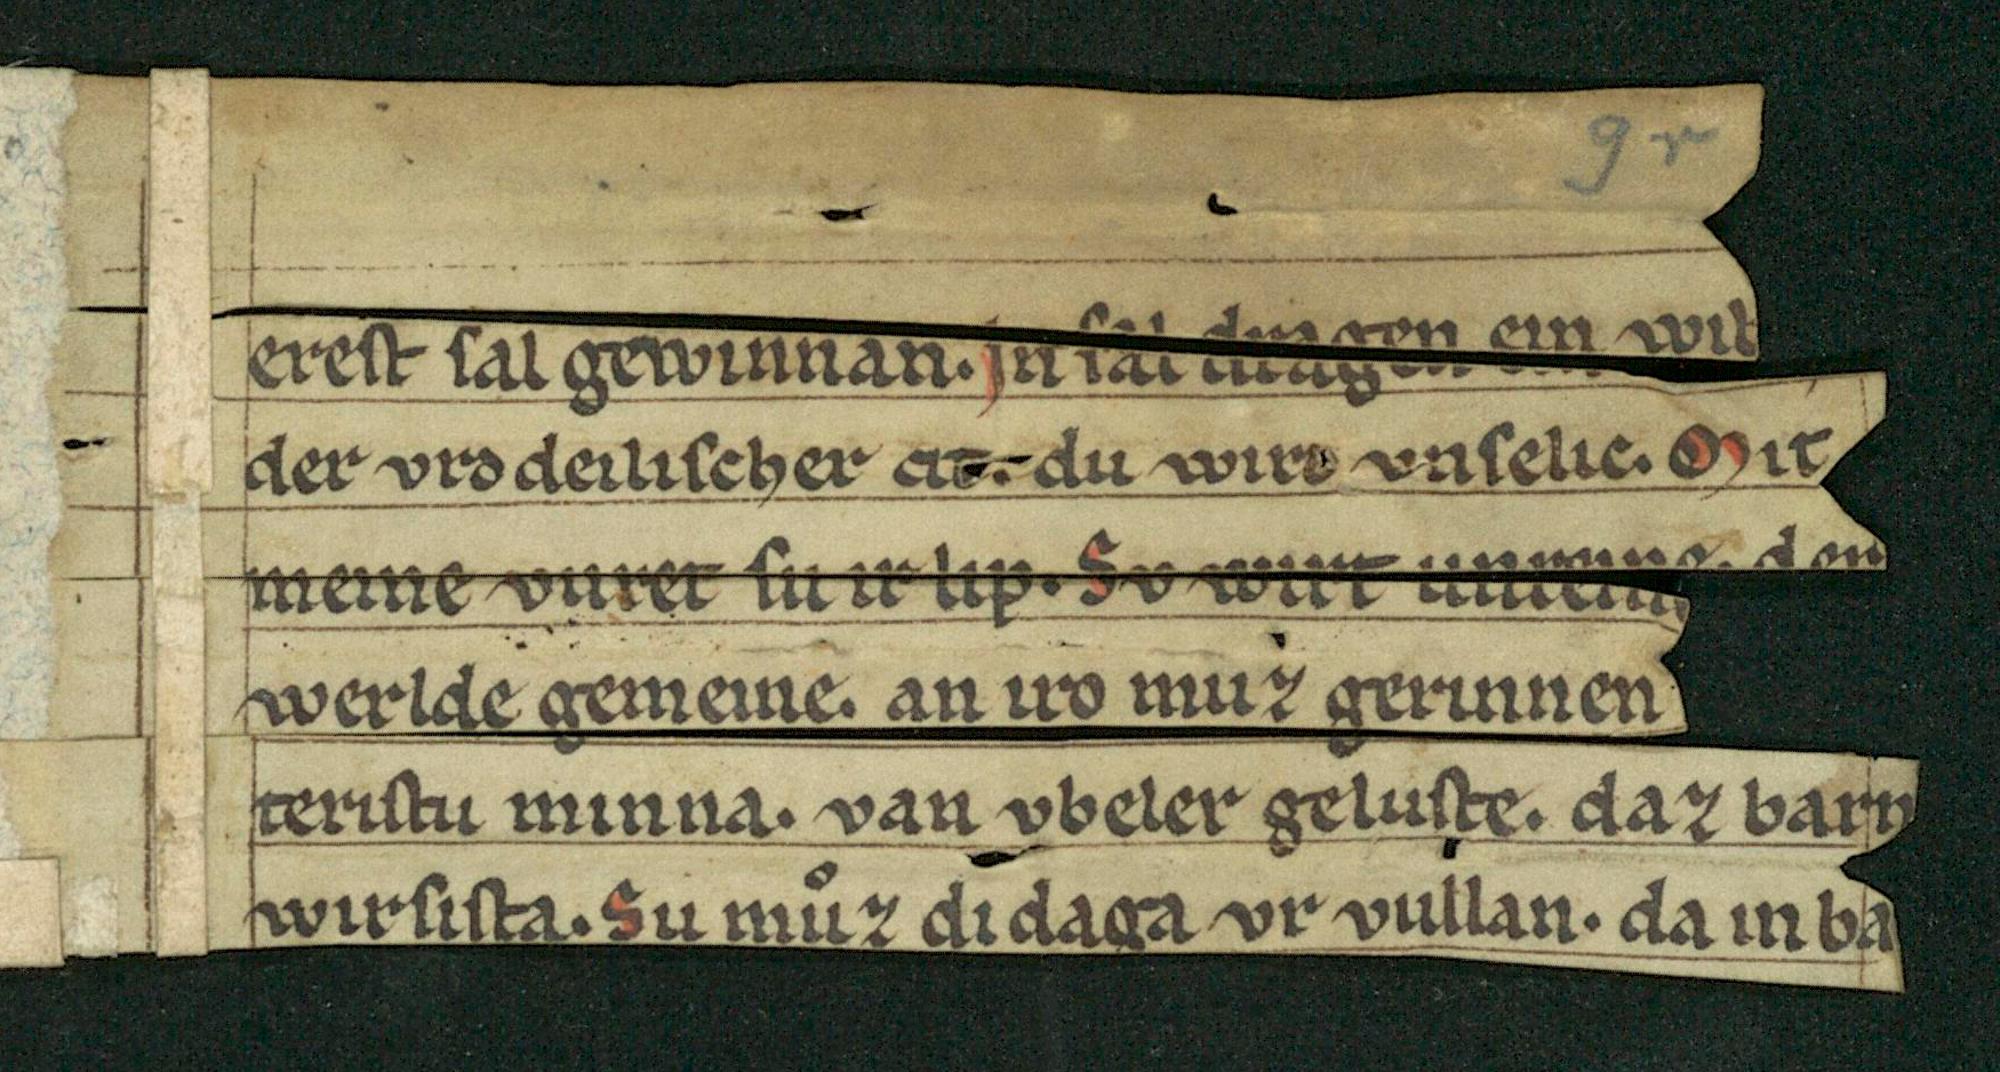 9r
erest sal gewinnan. Jn sal dragen ein wib
der vrodeilischer at. du wird vnselic. Mit
meine vuret su ir lip. Sv wirt unreine. den
werlde gemeine. an iro muz gerinnen
teristu minna. van vbeler geluste. daz barn
wirsista. Su můz di daga vr vullan. da in ba